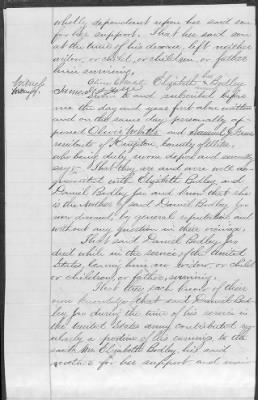 wholly dependent upon her said son
for her support. That her said son
at the time of his decease, left neither
widow, or child, or children, or father
him surviving.
Elizabeth her Bodley
mark
Sworn to and subscribed before
me the day and year first above written
and on the same day personally ap-
peared Olivia White and Samuel
residents of Kempton, County of
who being duly sworn depose and severally
say: That they are and were well ac-
quainted with Elizabeth Bodley and
Daniel Bodley for and know that she
is the Mother of said Daniel Bodley for
now deceased, by general reputation and
without any question in their vicinage.
That said Daniel Bodley for
died while in the service of the United
States, leaving him no widow, or child
or children, or father, surviving.
That they each know of their
own knowledge that said Daniel Bod-
ley for during the time of his service in
the United States army contributed reg-
ularly a portion of his earnings to the
said Mrs Elizabeth Bodley, his said
mother for her support and main